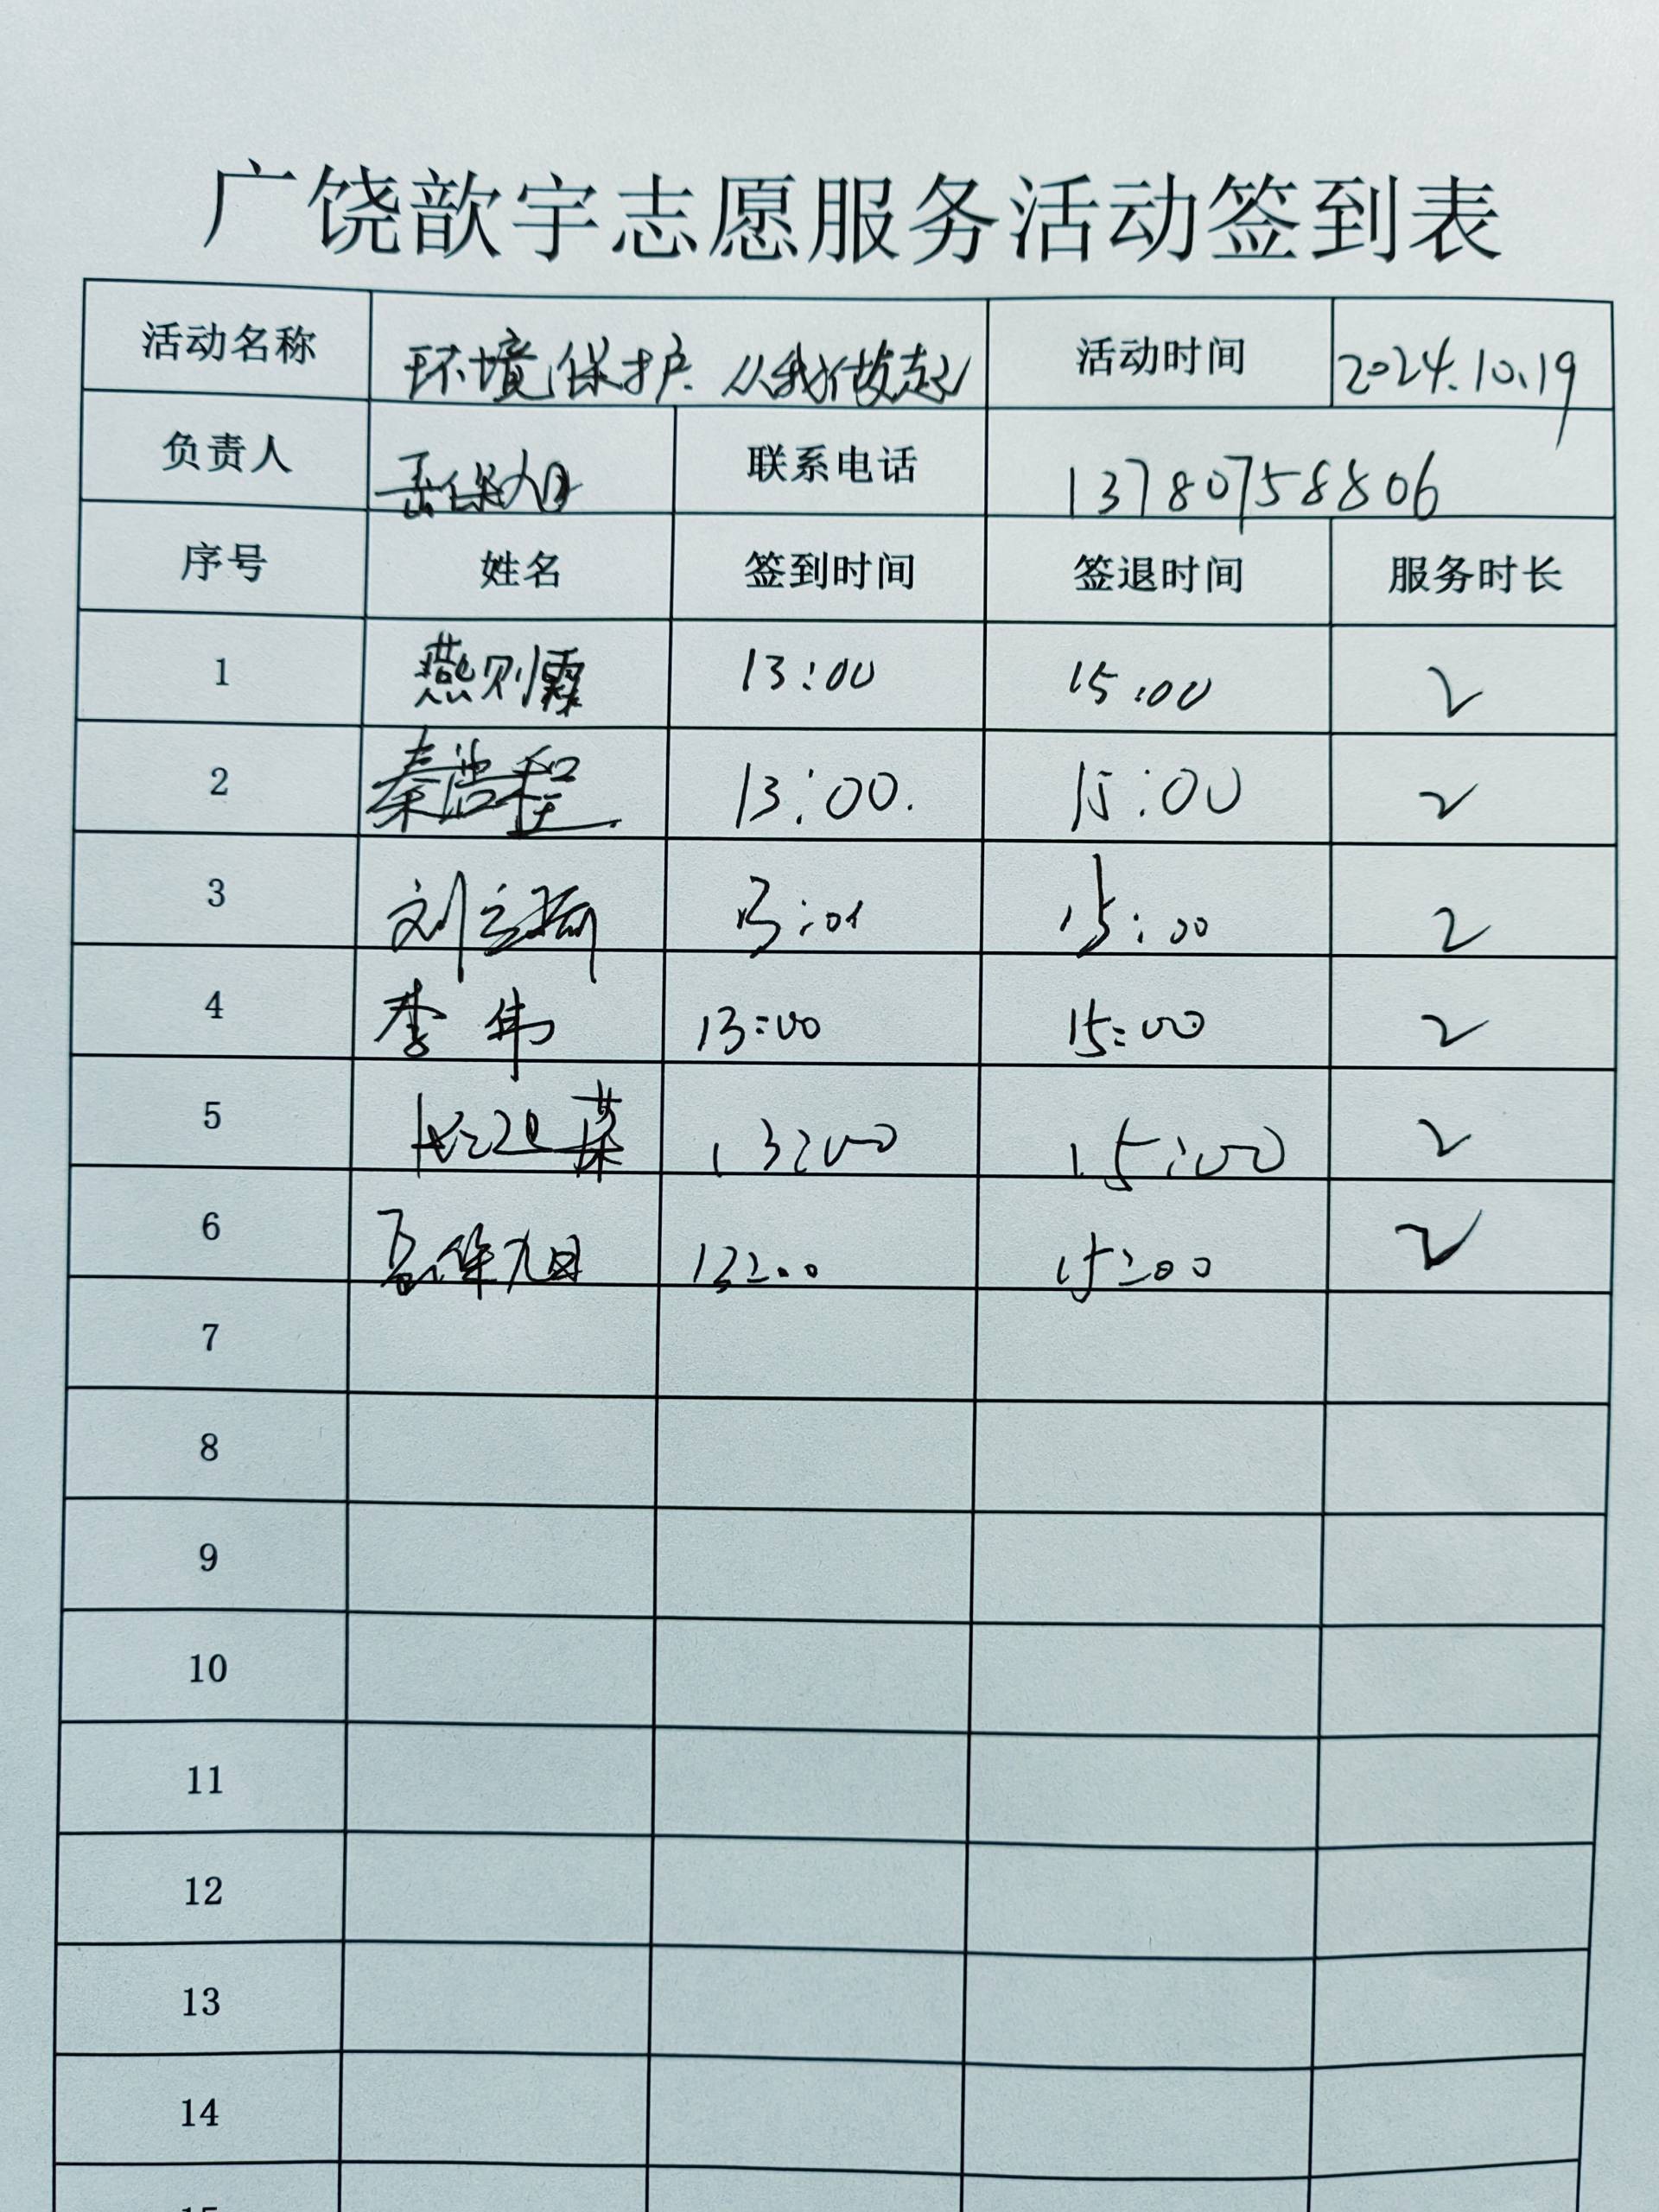 广饶歆宇志愿服务活动签到表
活动名称 环境保护 从我做起 活动时间 2024.10.19
负责人 联系电话 13780758806
序号 姓名 签到时间 签退时间 服务时长
1 燕则霖 13:00 15:00 2
2 秦浩程 13:00. 15:00 2
3 刘 13:01 15:00 2
4 李伟 13:00 15:00 2
5 13:00 15:00 2
6 13:00 15:00 2
7
8
9
10
11
12
13
14
15